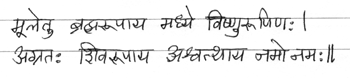 मूलेतु ब्रह्मरूपाय मध्ये विष्णुरूपिणः।
अग्रतः शिवरूपाय अश्वत्थाय नमो नमः॥